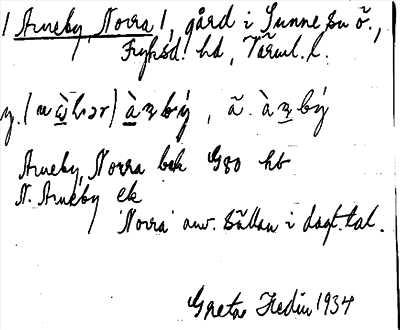 1 Arneby, Norra 1, gård i Sunne sn ö.,
Fryksd. hd, Värml. l.
y. (nὼhər) ὰɳbý, ä. ὰɳbý
Arneby, Norra bek G80 hb
N. Arneby ek
'Norra' anv. sällan i dagl. tal.
Greta Hedin 1934